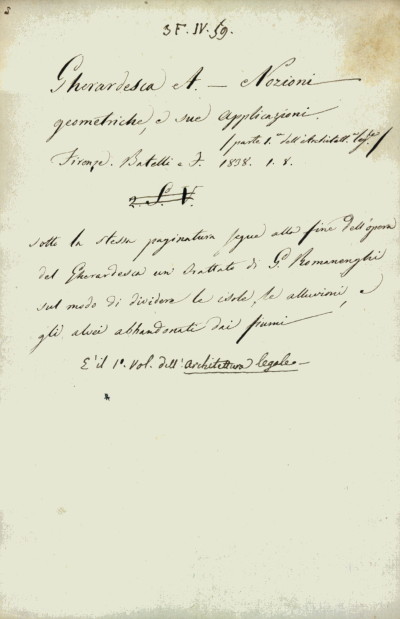 3F. IV. 59.
Gherardesca A. — Nozioni
geometriche, e sue applicazioni.
(parte 1.a dell'Architett.a leg.le)
Firenze. Batelli e F. 1838. 1. 8.
2. S. V.
sotto la stessa paginatura segue alla fine dell'opera
del Gherardesca un trattato di G. Romanenghi
sul modo di dividere le isole, le alluvioni, e
gli alvei abbandonati dai fiumi
E' il 1º. vol. dell'architettura legale —